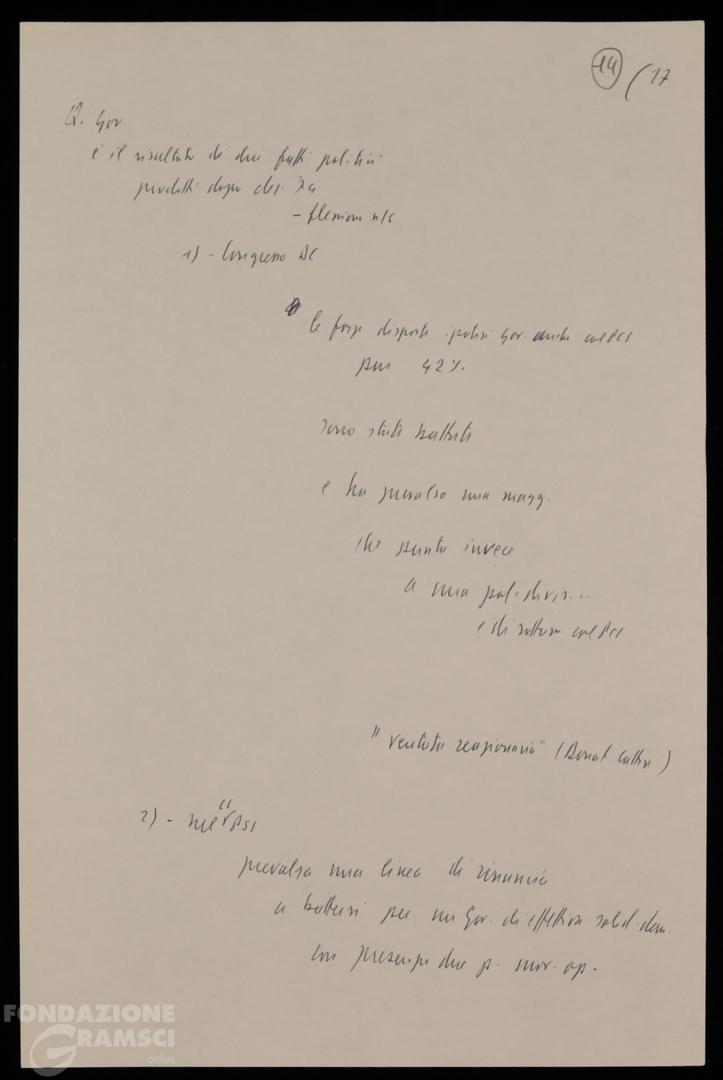 14 (17
Q. Gov.
è il risultato di due fatti politici
prodotti dopo elez. '79
- flessione n/s
1) - Congresso DC
le forze disposte ipotesi Gov. anche col PCI
pur 42%.
sono state battute
e ha prevalso una magg.
che punta invece
a una pol. divis...
e di rottura col PCI
"ventata reazionaria" (Donat Cattin)
2) - nel PSI
prevalsa una linea di rinuncia
a battersi per un Gov. di effettiva solid. dem.
con presenza due p. mov. op.
FONDAZIONE
GRAMSCI
onlus